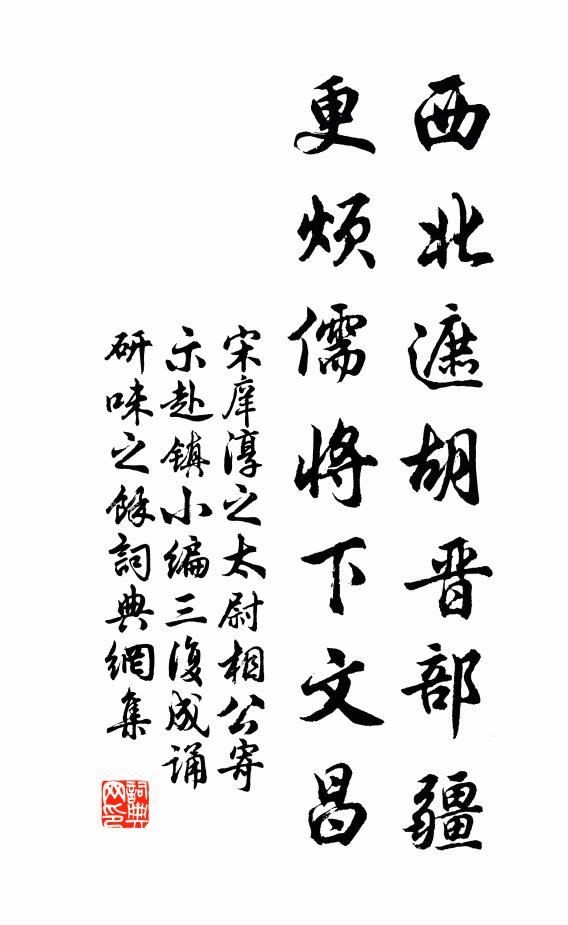 西北遮胡晋部疆
更烦儒将下文昌
宋庠淳之太尉相公寄
示赴镇小编三復成诵
研味之餘詞典網集
詞典网印